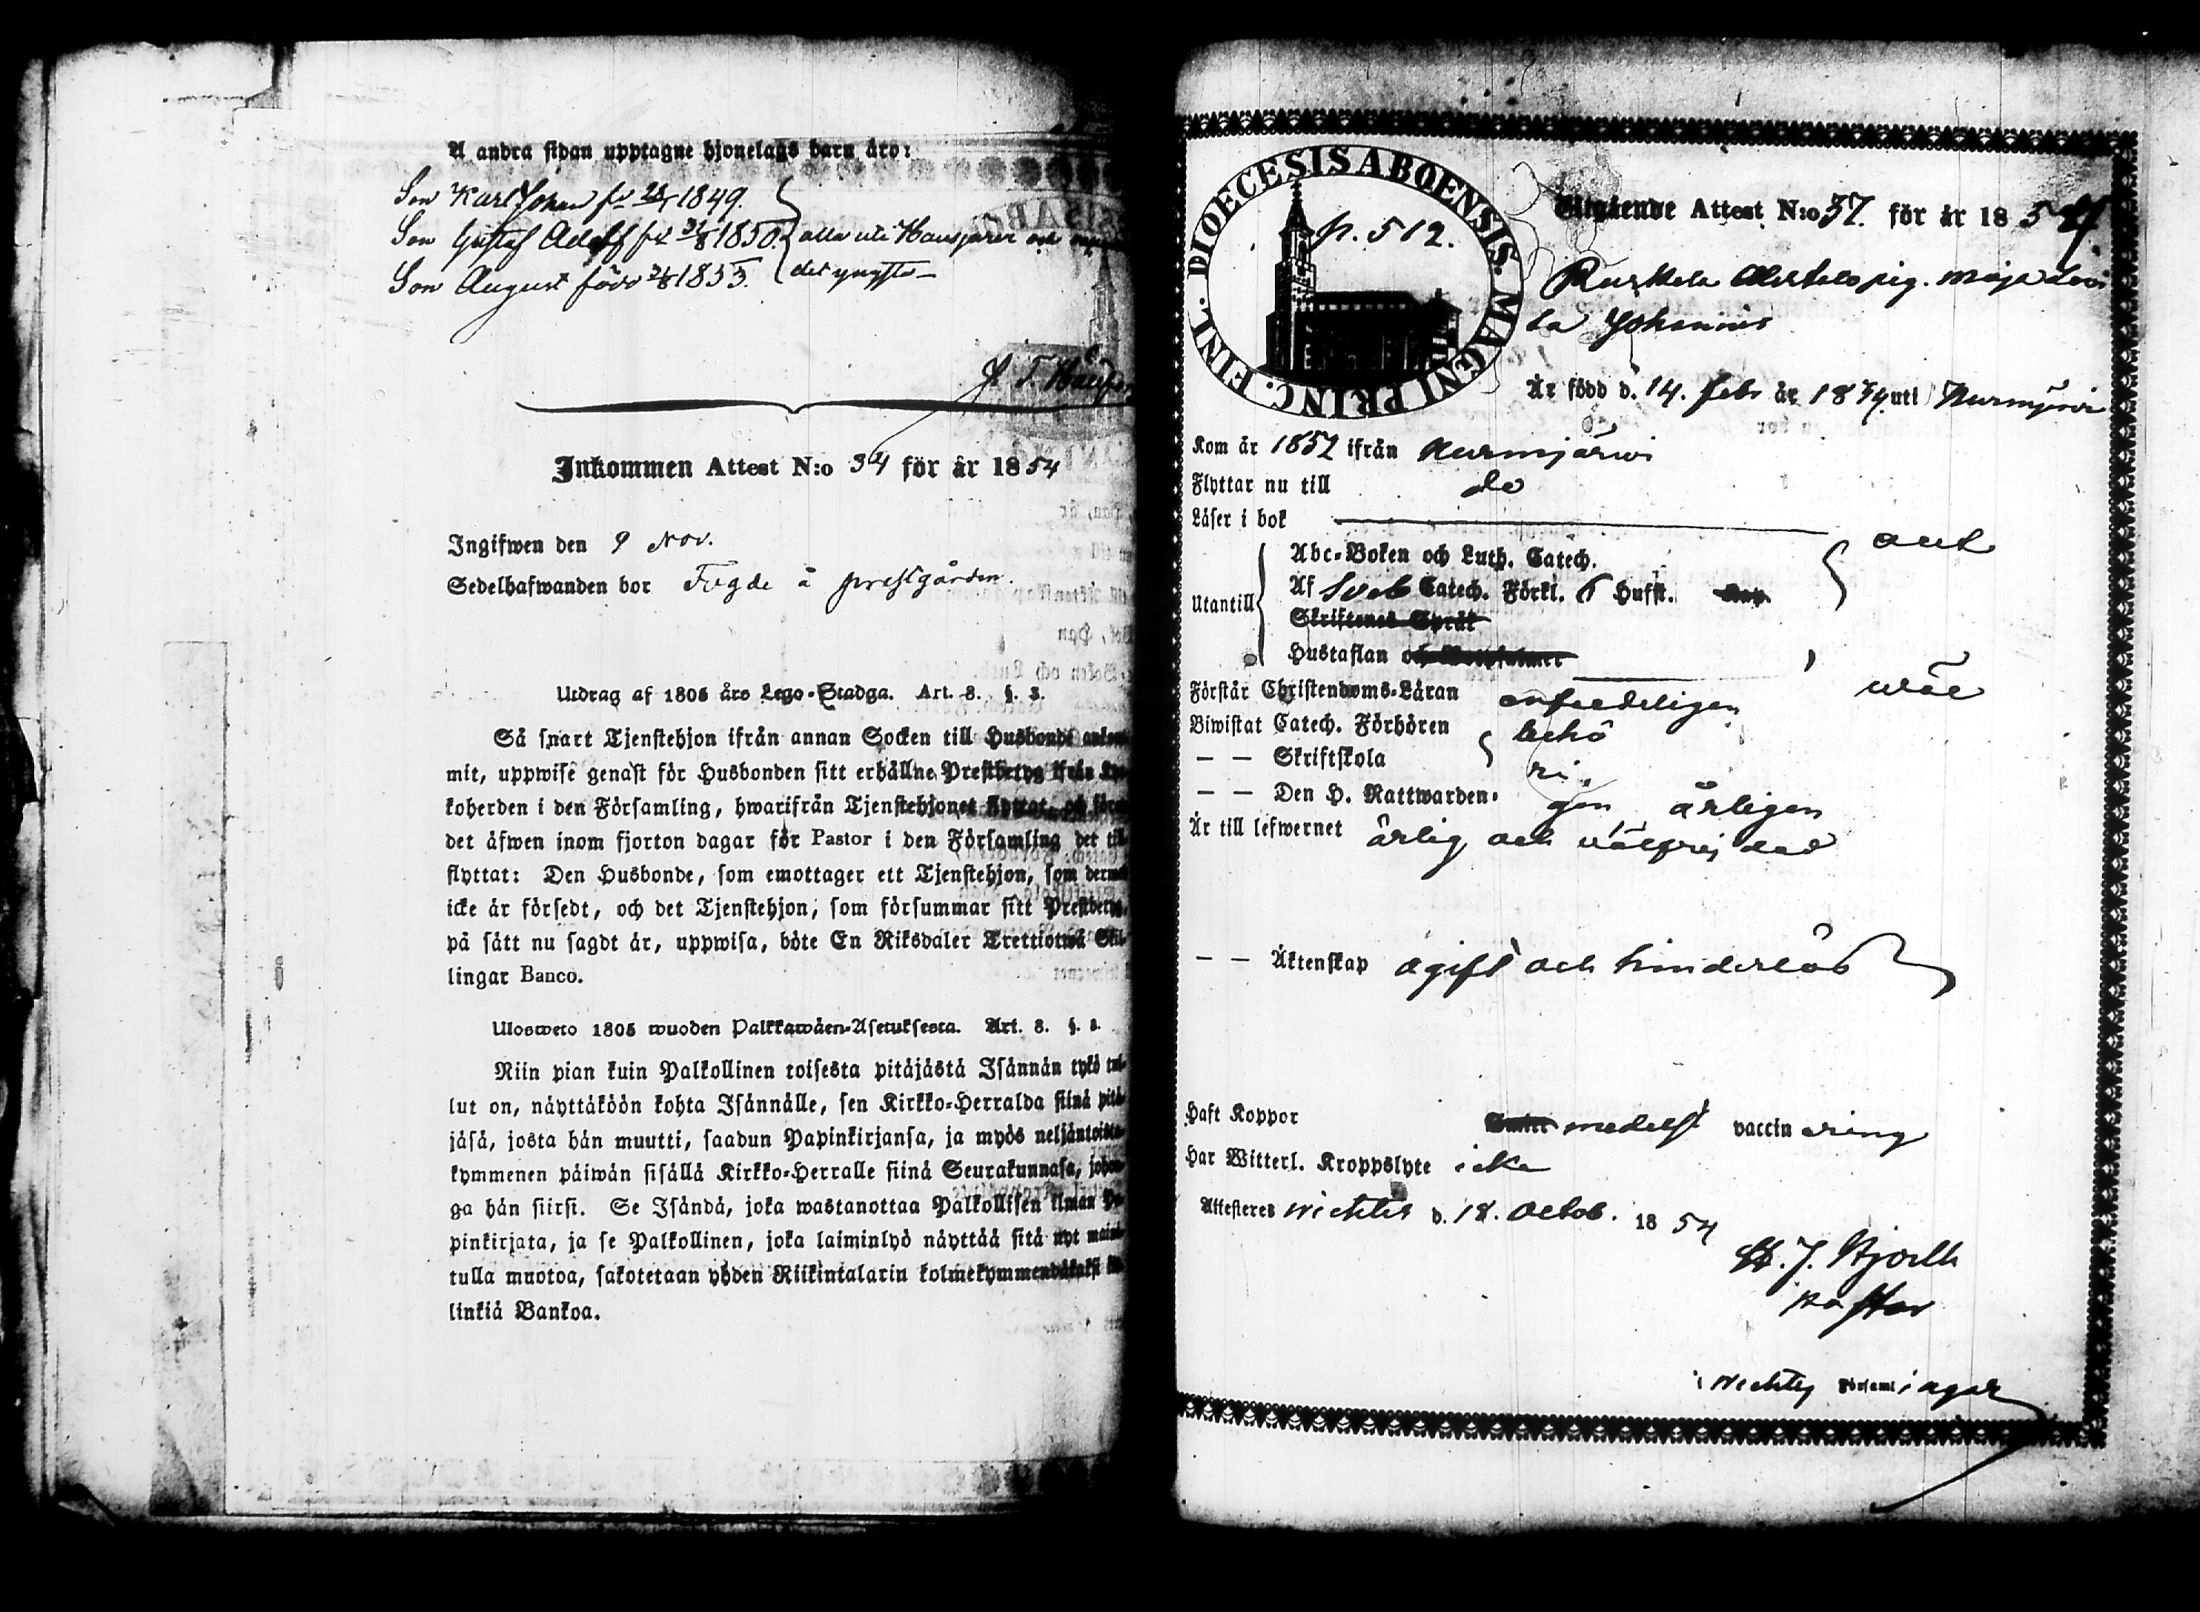 A andra sidan upptagne hjonelags barn äro:
Son Karl Johan 1849.
Son Gustaf Adolf 1850 alla uti Hausjärvi
Son August född 1853. det yngsta
Inkommen Attest N:o 34 för år 1854
Ingifwen den 9 Nov.
Sedelhafwanden bor Fogde å prestgården.
Utdrag af 1805 års Lego-Stadga. Art. 8. §. 3.
Så snart Tjenstehjon ifrån annan Socken till Husbonde ankom-
mit, uppwise genast för Husbonden sitt erhållne Prestbetyg ifrån Ky-
koherden i den Församling, hwarifrån Tjenstehjonet flyttat, och före
det äfwen inom fjorton dagar för Pastor i den Församling det till-
flyttat: Den Husbonde, som emottager ett Tjenstehjon, som dermed
icke är försedt, och det Tjenstehjon, som försummar sitt Prestbetyg,
på sätt nu sagdt är, uppwisa, böte En Riksdaler Trettiotwå Skil-
lingar Banco.
Ulosweto 1805 wuoden Palkkawäen-Asetuksesta. Art. 8. §. 3.
Niin pian kuin Palkollinen toisesta pitäjästä Isännän tykö tul-
lut on, näyttäköön kohta Isännälle, sen Kirkko-Herralda siinä pitä-
jäsä, josta hän muutti, saadun Papinkirjansa, ja myös neljäntoista-
kymmenen päiwän sisällä Kirkko-Herralle siinä Seurakunnasa, johon-
ga hän siirsi. Se Isändä, joka wastanottaa Palkollisen ilman Pa-
pinkirjata, ja se Palkollinen, joka laiminlyö näyttää sitä nyt maini-
tulla muotoa, sakotetaan yhden Riikintalarin kolmekymmendäkaksi kil-
linkiä Bankoa.
DIOECESIS ABOENSIS. MAGNI PRINC. FINL.
p. 512.
Utgående Attest N:o 37. för år 1854.
pig. Maja Lovi
sa Johannis
Är född d. 14. Febr år 1834 uti Nurmijärvi
Kom år 1852 ifrån Nurmijärwi
Flyttar nu till do
Läser i bok
Utantill
Abc-Boken och Luth. Catech.
Af Sveb Catech. Förkl. 6 Hufst.
Skriftenes Språk
Hustaflan och
Förstår Christendoms-Läran enfaldeligen wäl
Biwistat Catech. Förhören behö
— — Skriftskola ri
— — Den H. Nattwarden gen årligen
Är till lefwernet ärlig och välfrejdad
— — Äktenskap ogift och hinderlös
Haft Koppor medelst vaccinering
Har Witterl. Kroppslyte icke
Attesteres Wichtis d. 18. Octob. 1854
H. J. Hjorth
Pastor
i Wichtis Församlingar